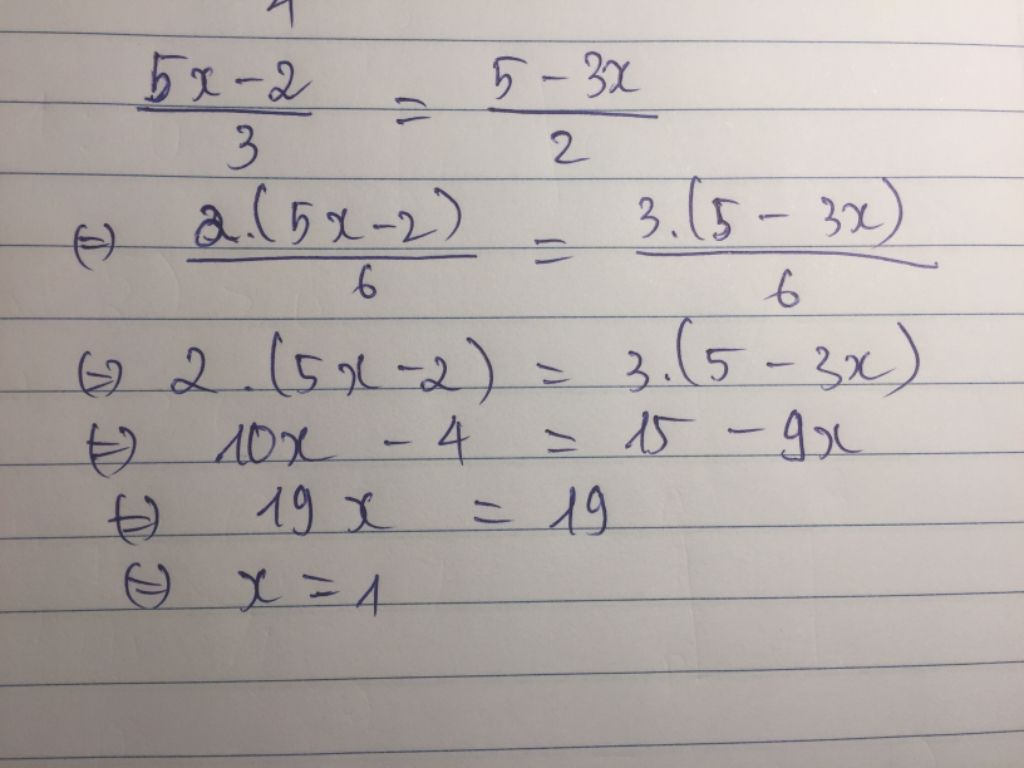 5x - 2 / 3 = 5 - 3x / 2
⇔ 2.(5x - 2) / 6 = 3.(5 - 3x) / 6
⇔ 2.(5x - 2) = 3.(5 - 3x)
⇔ 10x - 4 = 15 - 9x
⇔ 19x = 19
⇔ x = 1